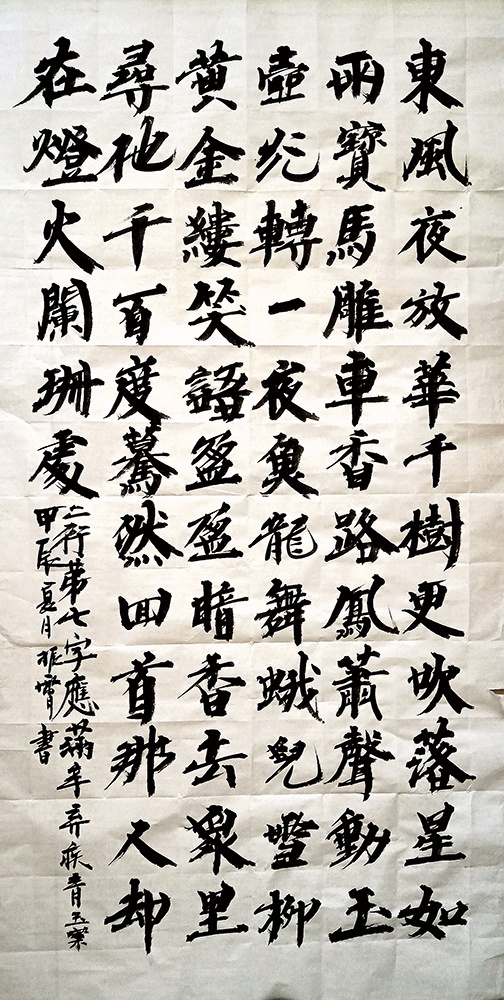 東風夜放華千樹更吹落星如
雨寶馬雕車香路鳳蕭聲動玉
壺光轉一夜魚龍舞蛾兒雪柳
黄金縷笑語盈盈暗香去衆里
尋他千百度驀然回首那人却
在燈火闌珊處
二行第七字應滿辛弃疾青玉案
甲辰夏月振霄書